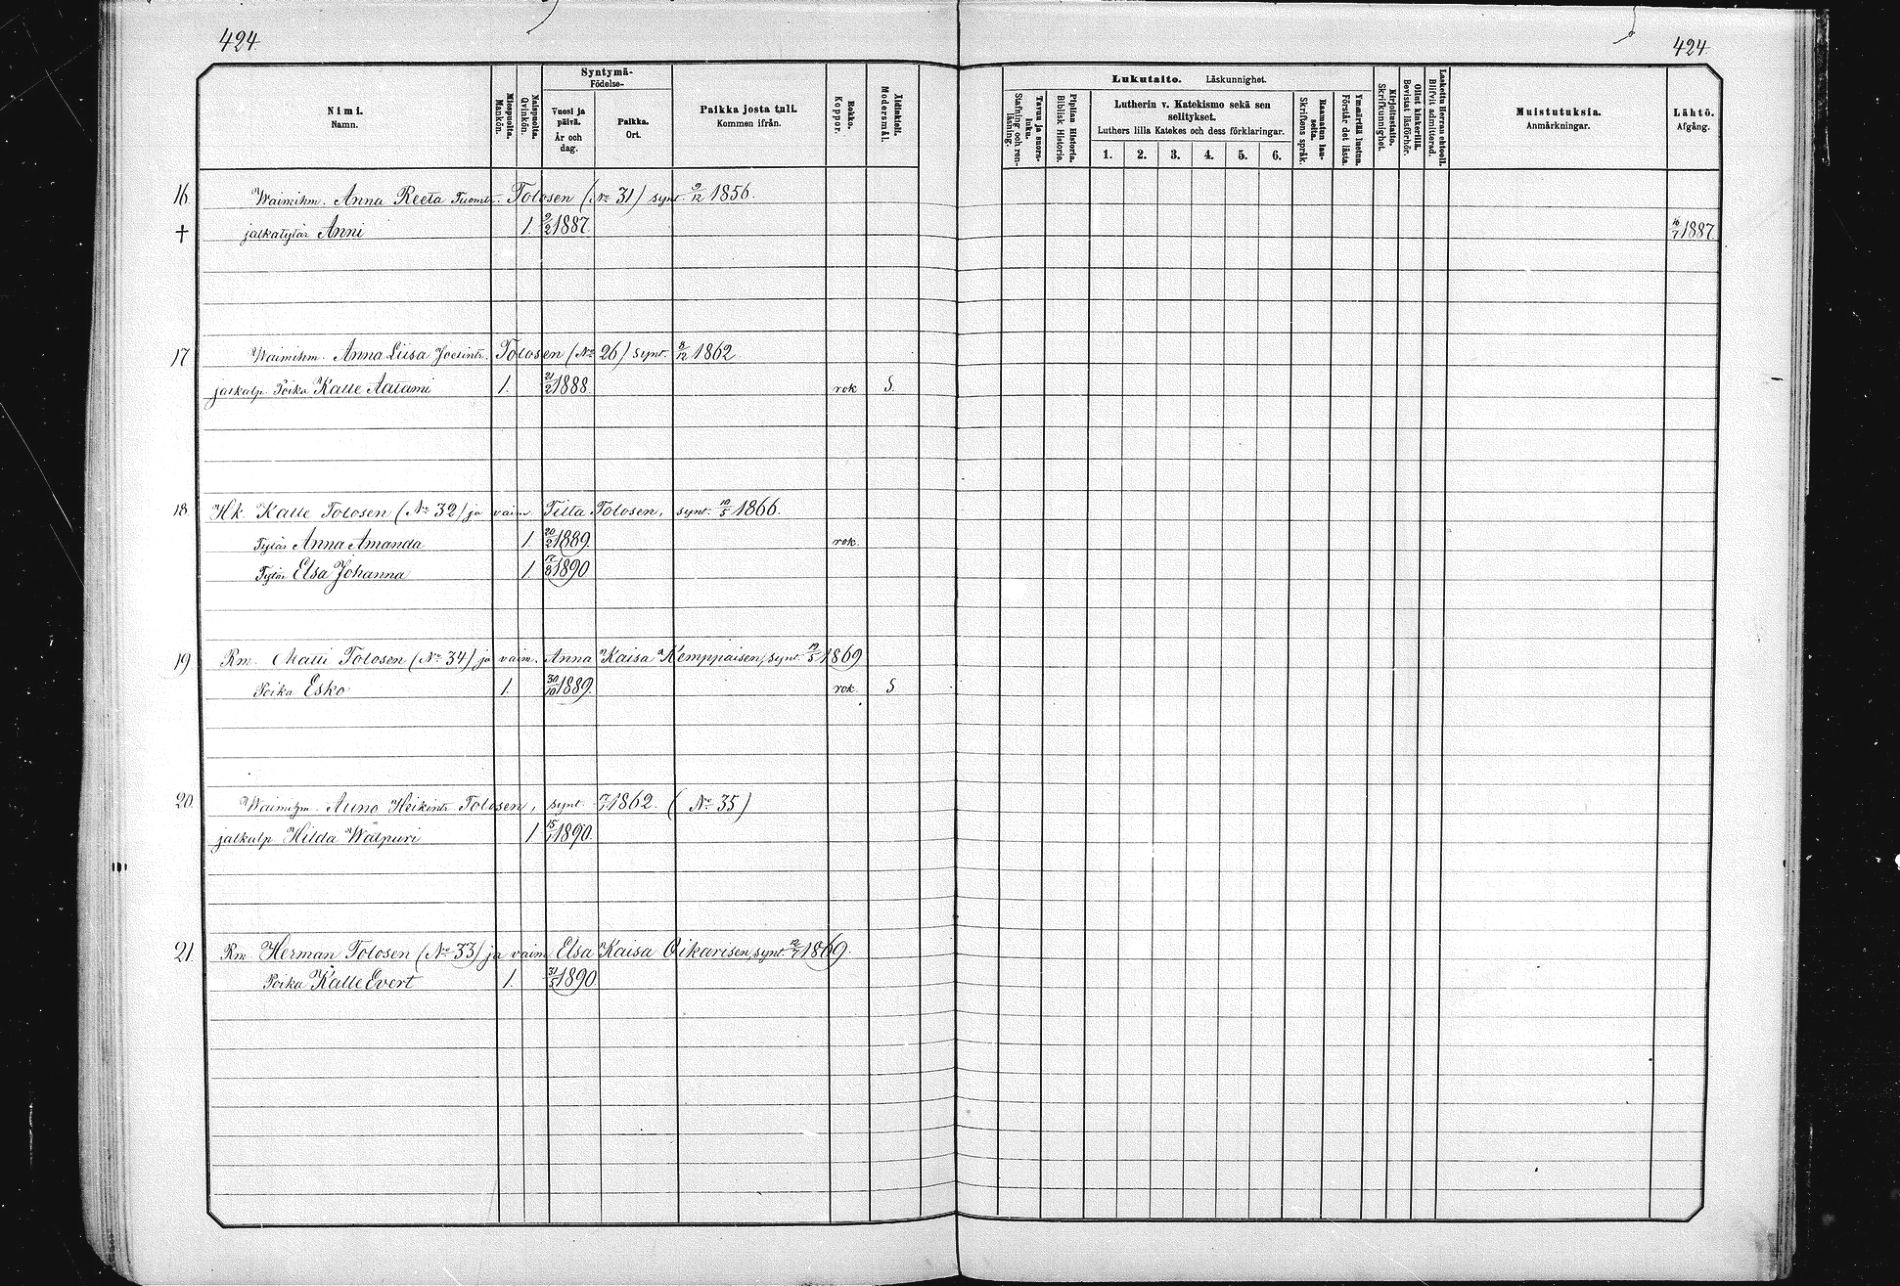 424
424
Nimi.
Namn.
Miespuolta.
Mankön.
Naispuolta.
Qvinkön.
Syntymä-
Födelse-
Vuosi ja päivä.
År och dag.
Paikka.
Ort.
Paikka josta tuli.
Kommen ifrån.
Rokko.
Koppor.
Äidinkieli.
Modersmål.
Lukutaito. Läskunnighet.
Tavuu ja suora- luku.
Stafning och ren- läsning.
Piplian Historia.
Biblisk Historia.
Lutherin v. Katekismo sekä sen
selitykset.
Luthers lilla Katekes och dess förklaringar.
1. 2. 3. 4. 5. 6.
Raamatun lau- seita.
Skriftens språk.
Ymmärtää luetun.
Förstår det lästa.
Kirjoitustaito.
Skrifkunnighet.
Ollut kinkerillä.
Bevistat läsförhör.
Laskettu Herran ehtooll.
Blifvit admitterad.
Muistutuksia.
Anmärkningar.
Lähtö.
Afgång.
16 Waimihm. Anna Reeta Tuomtr. Tolosen (No 31) synt. 9/12 1856.
† jalkatytär Anni 1. 9/2 1887. 16/7 1887
17 Waimihm. Anna Liisa Joelintr. Tolosen (No 26) synt. 8/12 1862
jalkalp. Poika Kalle Aatami 1. 21/2 1888. rok S.
18. Hk. Kalle Tolosen (No 32) ja vaim Tilta Tolosen, synt. 10/5 1866.
Tytär Anna Amanda 1. 20/2 1889. rok.
Tytär Elsa Johanna 1. 17/8 1890
19 Rm. Matti Tolosen (No 34) ja vaim. Anna Kaisa Kemppaisen, synt. 19/5 1869
Poika Esko 1. 30/10 1889. rok S
20. Waimihm. Auno Heikintr Tolosen, synt. 7/1 1862. (No 35)
jalkalp Hilda Walpuri 1 15/1 1890.
21. Rm. Herman Tolosen (No 33) ja vaim Elsa Kaisa Oikarisen, synt. 1869.
Poika Kalle Evert 1. 31/5 1890.